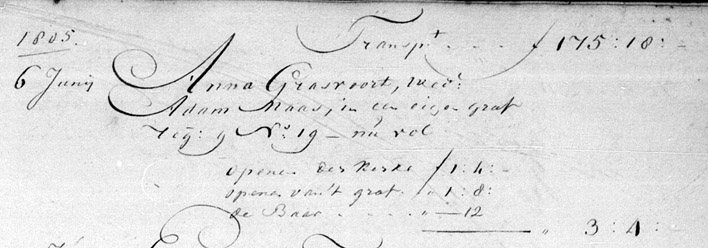 1805. Transpt . . . . ƒ 175:18:
6 Junij Anna Grasvoort, wed:
Adam Maas, in een eigen graf
Reg: 9 No: 19 — nu vol
openen der Kerke ƒ 1:4:
openen van't graf. " 1:8:
de Baar . . . . . " — 12
" 3:4: